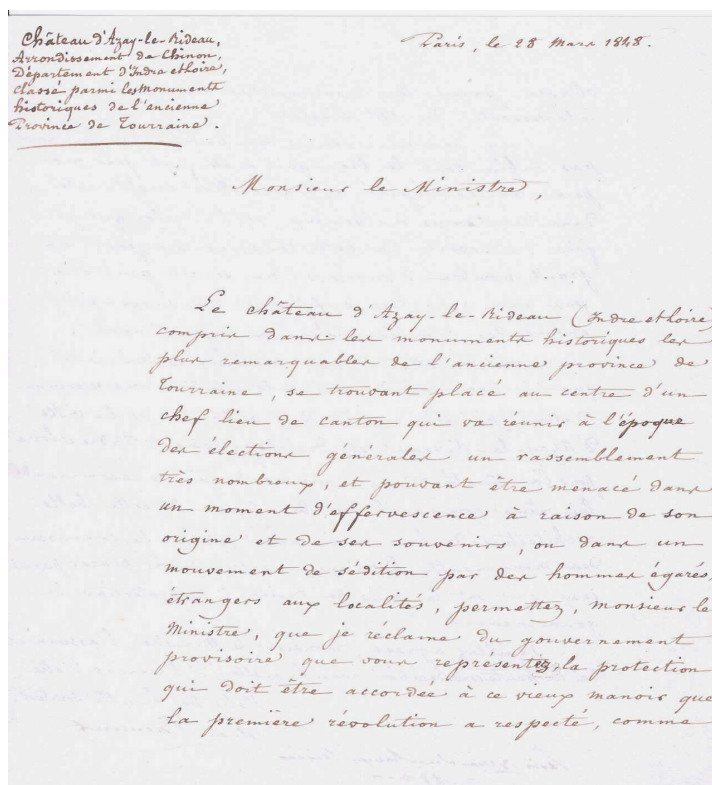 Château d'Azay-le-Rideau,
Arrondissement de Chinon,
Département d'Indre et Loire,
classé parmi les monuments
historiques de l'ancienne
Province de Tourraine.
Paris, le 28 Mars 1848.
Monsieur le Ministre,
Le château d'Azay-le-Rideau (Indre et Loire)
compris dans les monuments historiques les
plus remarquables de l'ancienne province de
Tourraine, se trouvant placé au centre d'un
chef lieu de canton qui va réunir à l'époque
des élections générales un rassemblement
très nombreux, et pouvant être menacé dans
un moment d'effervescence à raison de son
origine et de ses souvenirs, ou dans un
mouvement de sédition par des hommes égarés,
étrangers aux localités, permettez, monsieur le
Ministre, que je réclame du gouvernement
provisoire que vous représentez, la protection
qui doit être accordée à ce vieux manoir que
la première révolution a respecté, comme